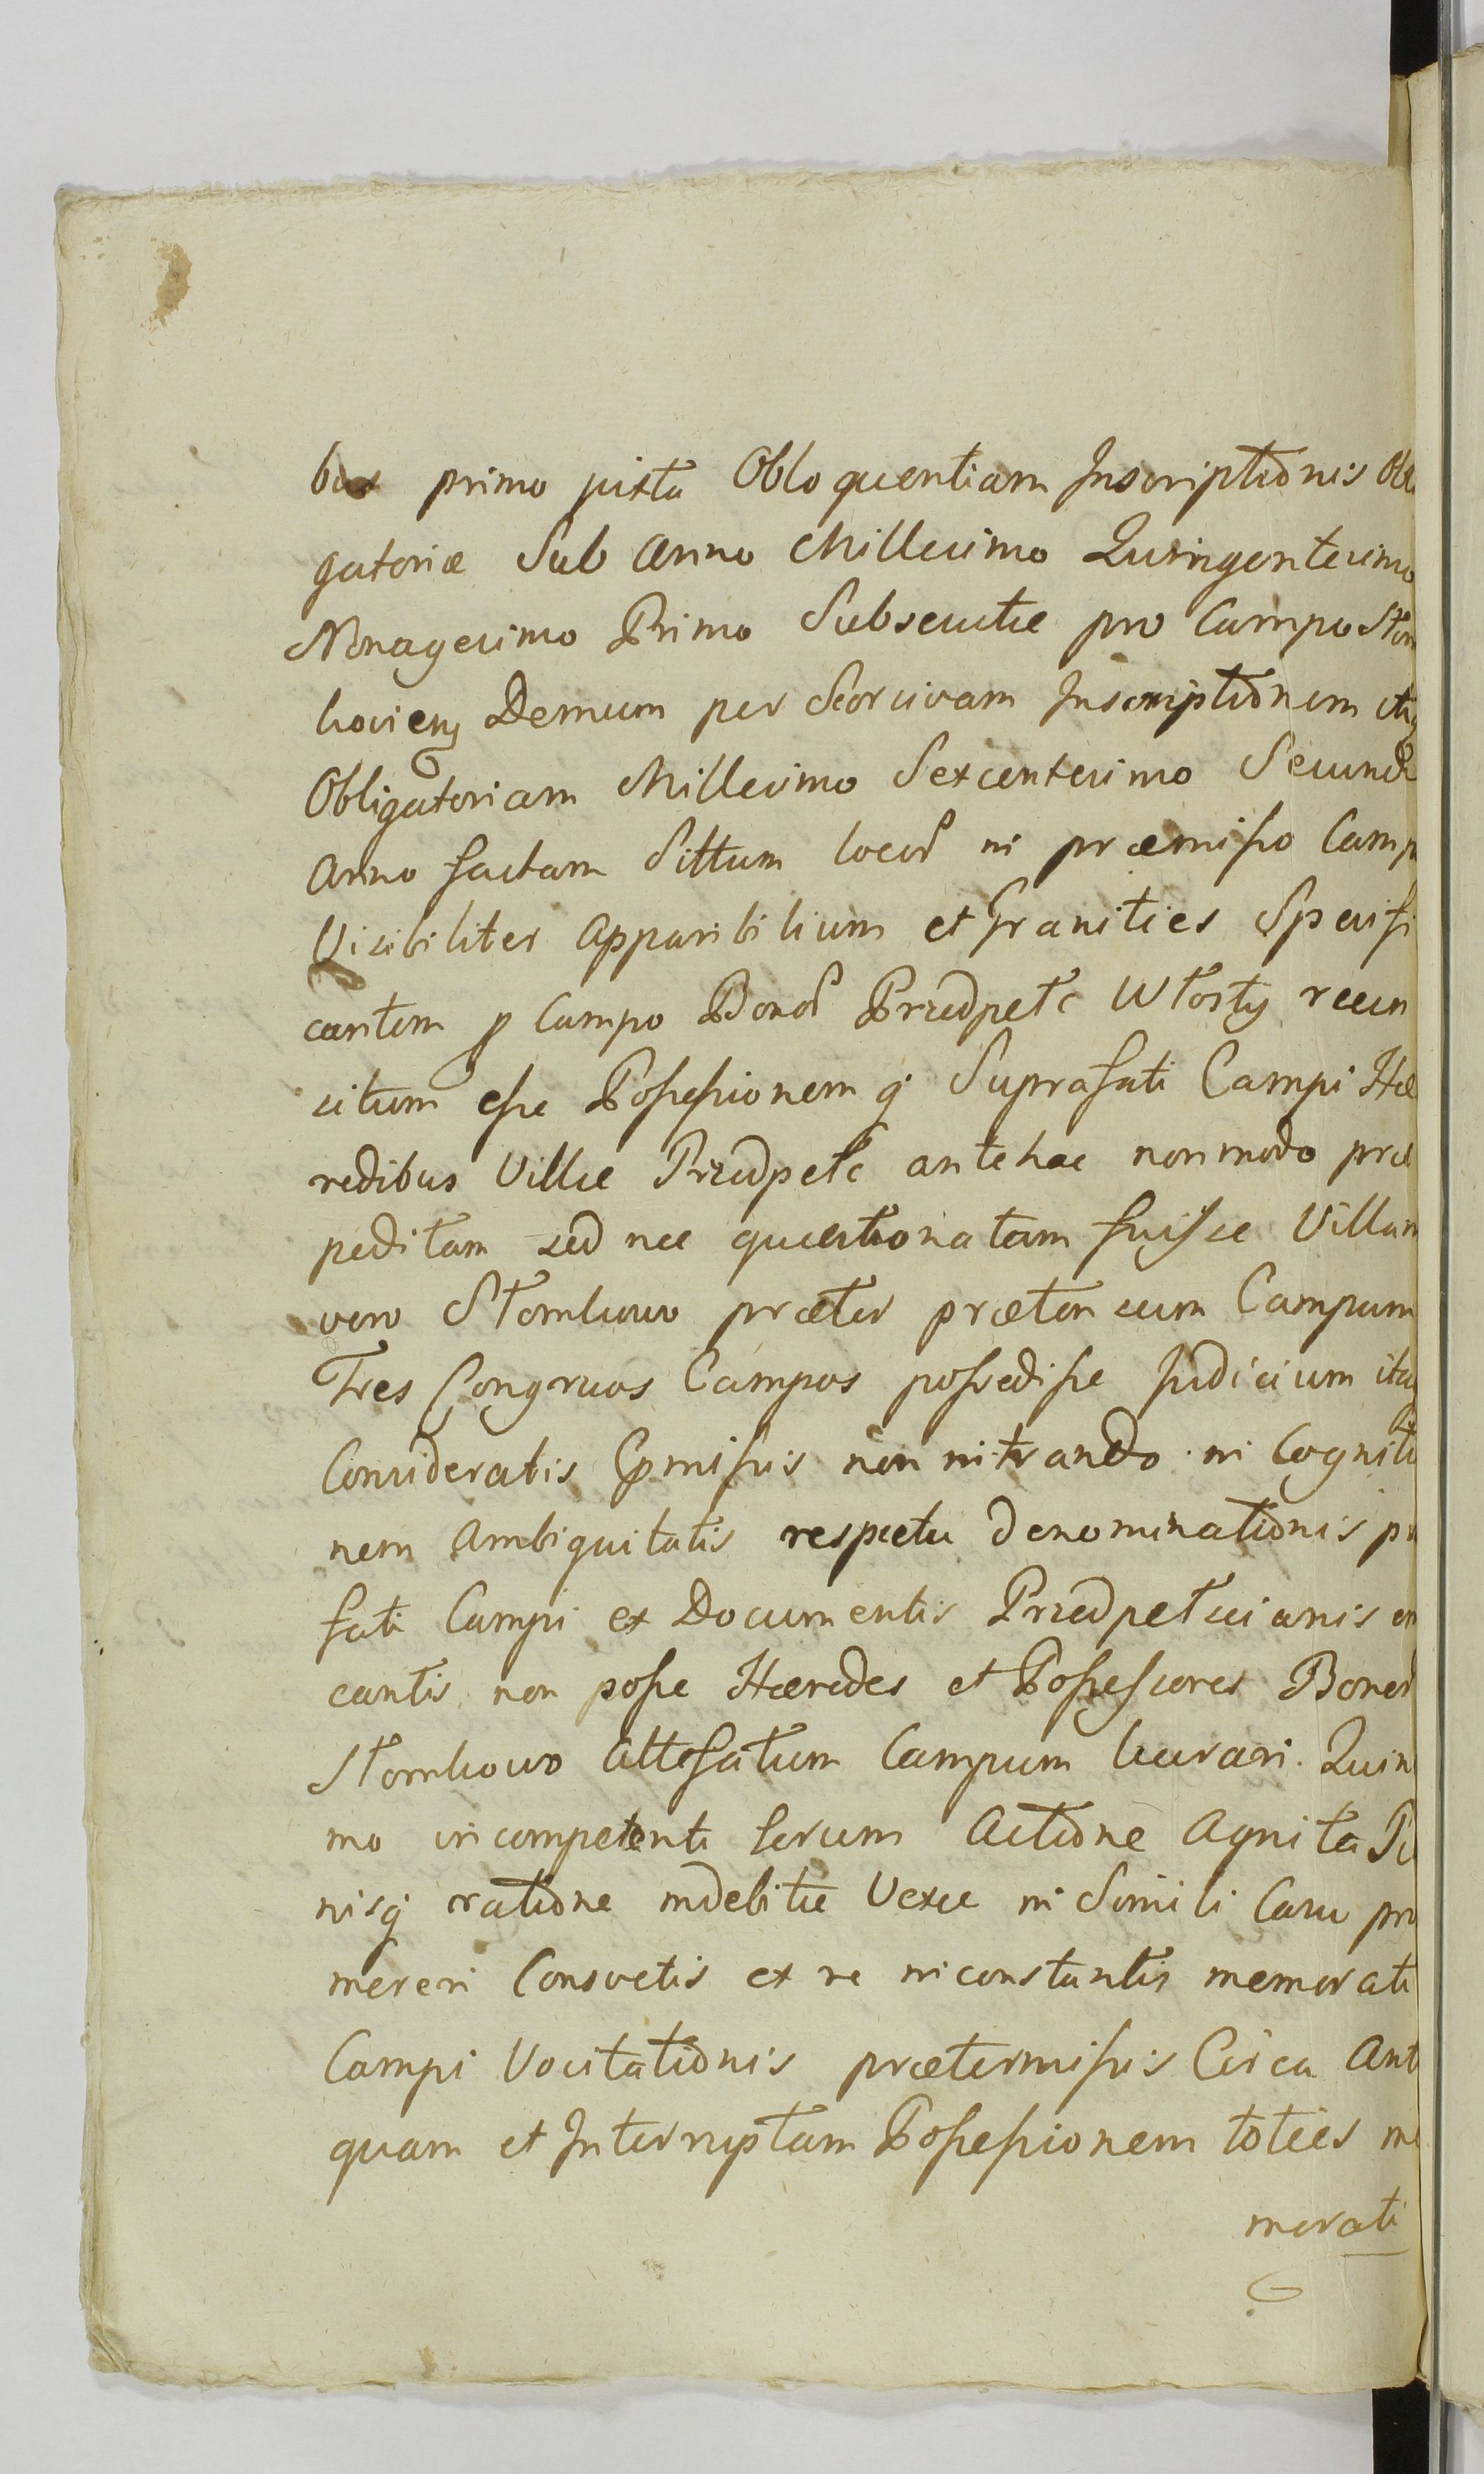 bus primo juxta Obloquentiam Inscriptiõnis Obli
gatoriæ Sub Anno Millesimo Quingentesimo
Nonagesimo Primo Subsecutæ pro Campo Stom
koviens Demum per Seorsivam Inscriptiõnem itq
Obligatoriam Millesimo Sexcentesimo Secundo
Anno factam Sittum locoȓ in præmisso Campo
Visibiliter Apparibilium et Granities Specifi
cantem p Campo Bonoȓ Przedpełc Włosty recen
situm esse Possessionemq Suprafati Campi Hæ
redibus Villæ Przedpełc antehac non modo præ
peditam sed nec quæstionatam fuisse Villam
vero Stomkowo præter prætensum Campum
Tres Congruos Campos possedisse Judicium itaq
Consideratis Pmissis non intrando in Cogniti
nem Ambiguitatis respectu denominatiõnis præ
fati Campi ex Documentis Przedpełscianis em
cantis, non posse Hæredes et Possessores Bonoȓ
Stomkowo Attefatum Campum lucrari. Quini
mo incompetenti horum Actiõne Agnita Pæ
nisq ratiõne indebitæ Vexæ in Simili Casu pro
mereri Consvetis ex re inconstantis memorati
Campi Vocitatiõnis prætermissis Circa Anti
quam et Interruptam Possessionem toties me
morati